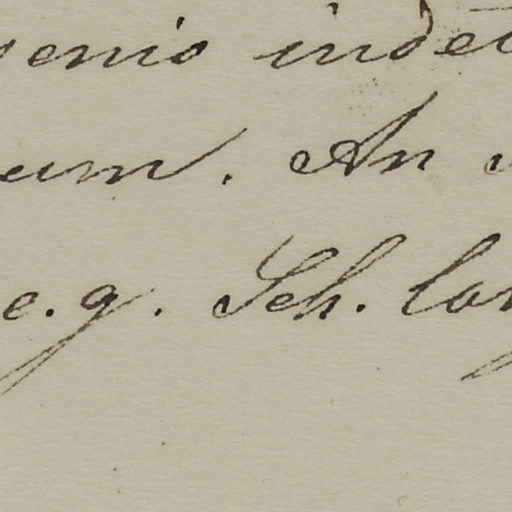 enio indet
um. An
e.g. Sch. lon